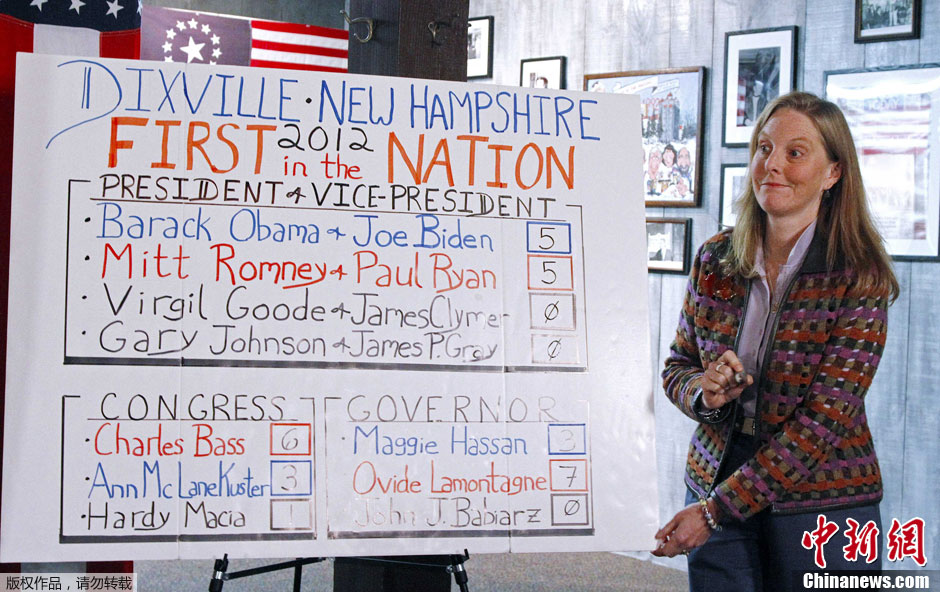 DIXVILLE · NEW HAMPSHIRE
FIRST 2012 in the NATION
PRESIDENT & VICE-PRESIDENT
· Barack Obama & Joe Biden 5
· Mitt Romney & Paul Ryan 5
· Virgil Goode & James Clymer 0
· Gary Johnson & James P. Gray 0
CONGRESS
· Charles Bass 6
· Ann McLane Kuster 3
· Hardy Macia 1
GOVERNOR
· Maggie Hassan 3
· Ovide Lamontagne 7
· John J. Babiarz 0
版权作品,请勿转载
中新网
Chinanews.com